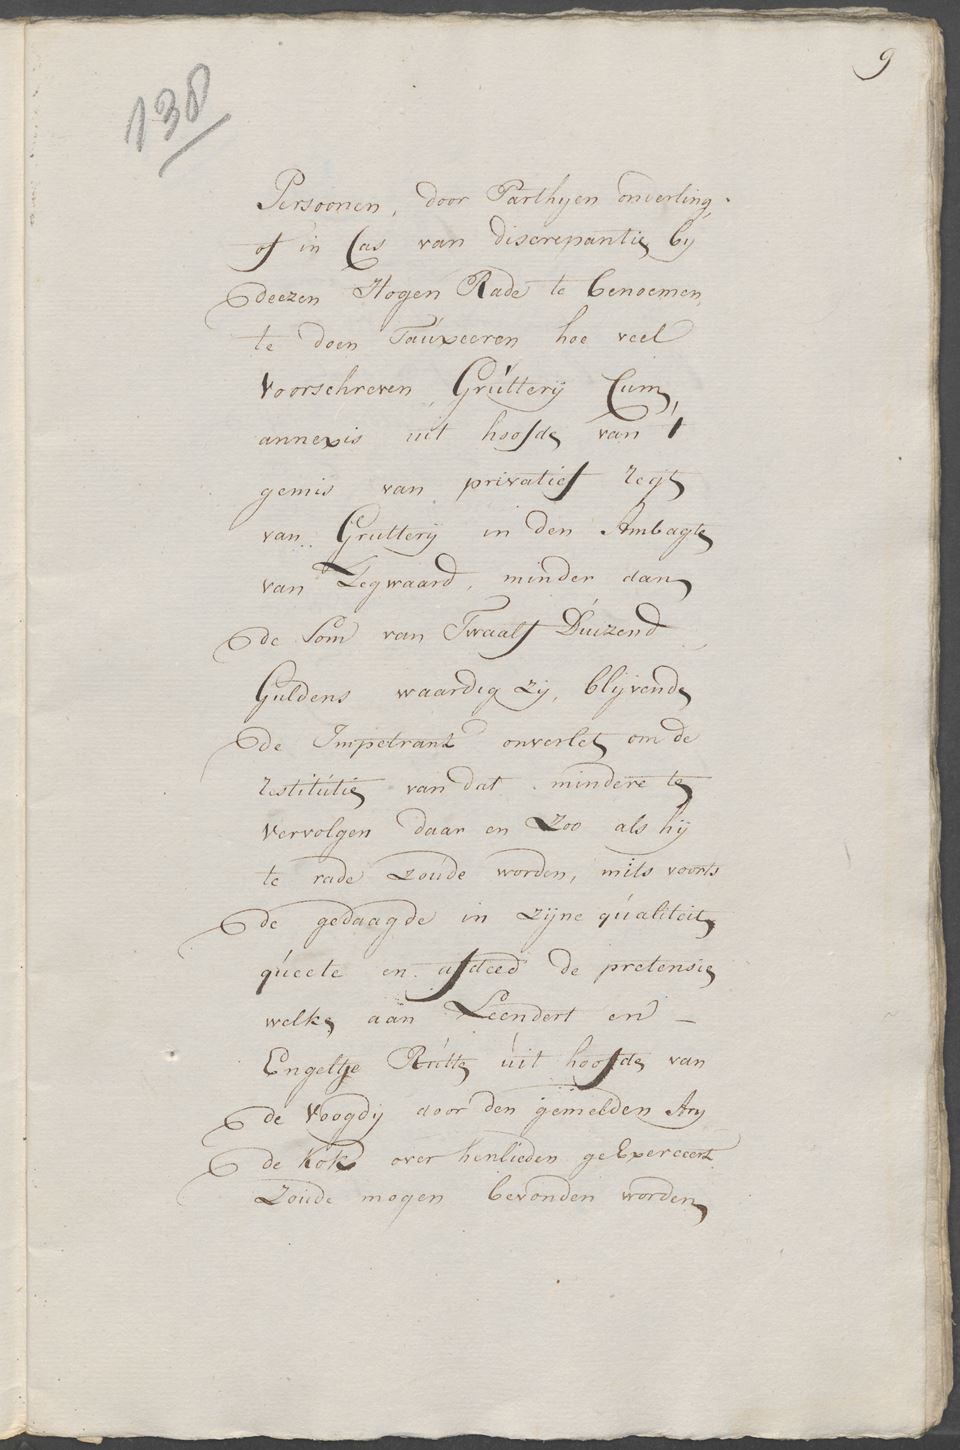 9
138
Persoonen, door Parthyen onderling,
of in Cas van discrepantie by
deezen Hogen Rade te benoemen,
te doen Tauxeeren hoe veel
voorschreven Grutterij Cum
annexis uit hoofde van 't
gemis van privatief regt
van Grutterij in den Ambagte
van Zegwaard, minder dan
de Som van Twaalf Duizend
Guldens waardig zy, blijvende
de Impetrant onverlet om de
restitutie van dat mindere te
vervolgen daar en zoo als hij
te rade zoude worden, mits voorts
de gedaagde in zijne qualiteit
queete en afdeed de pretensie
welke aan Leendert en
Engeltje Rutte uit hoofde van
de voogdij door den gemelden Ary
de Kok over henlieden geExerceert
zoude mogen bevonden worden